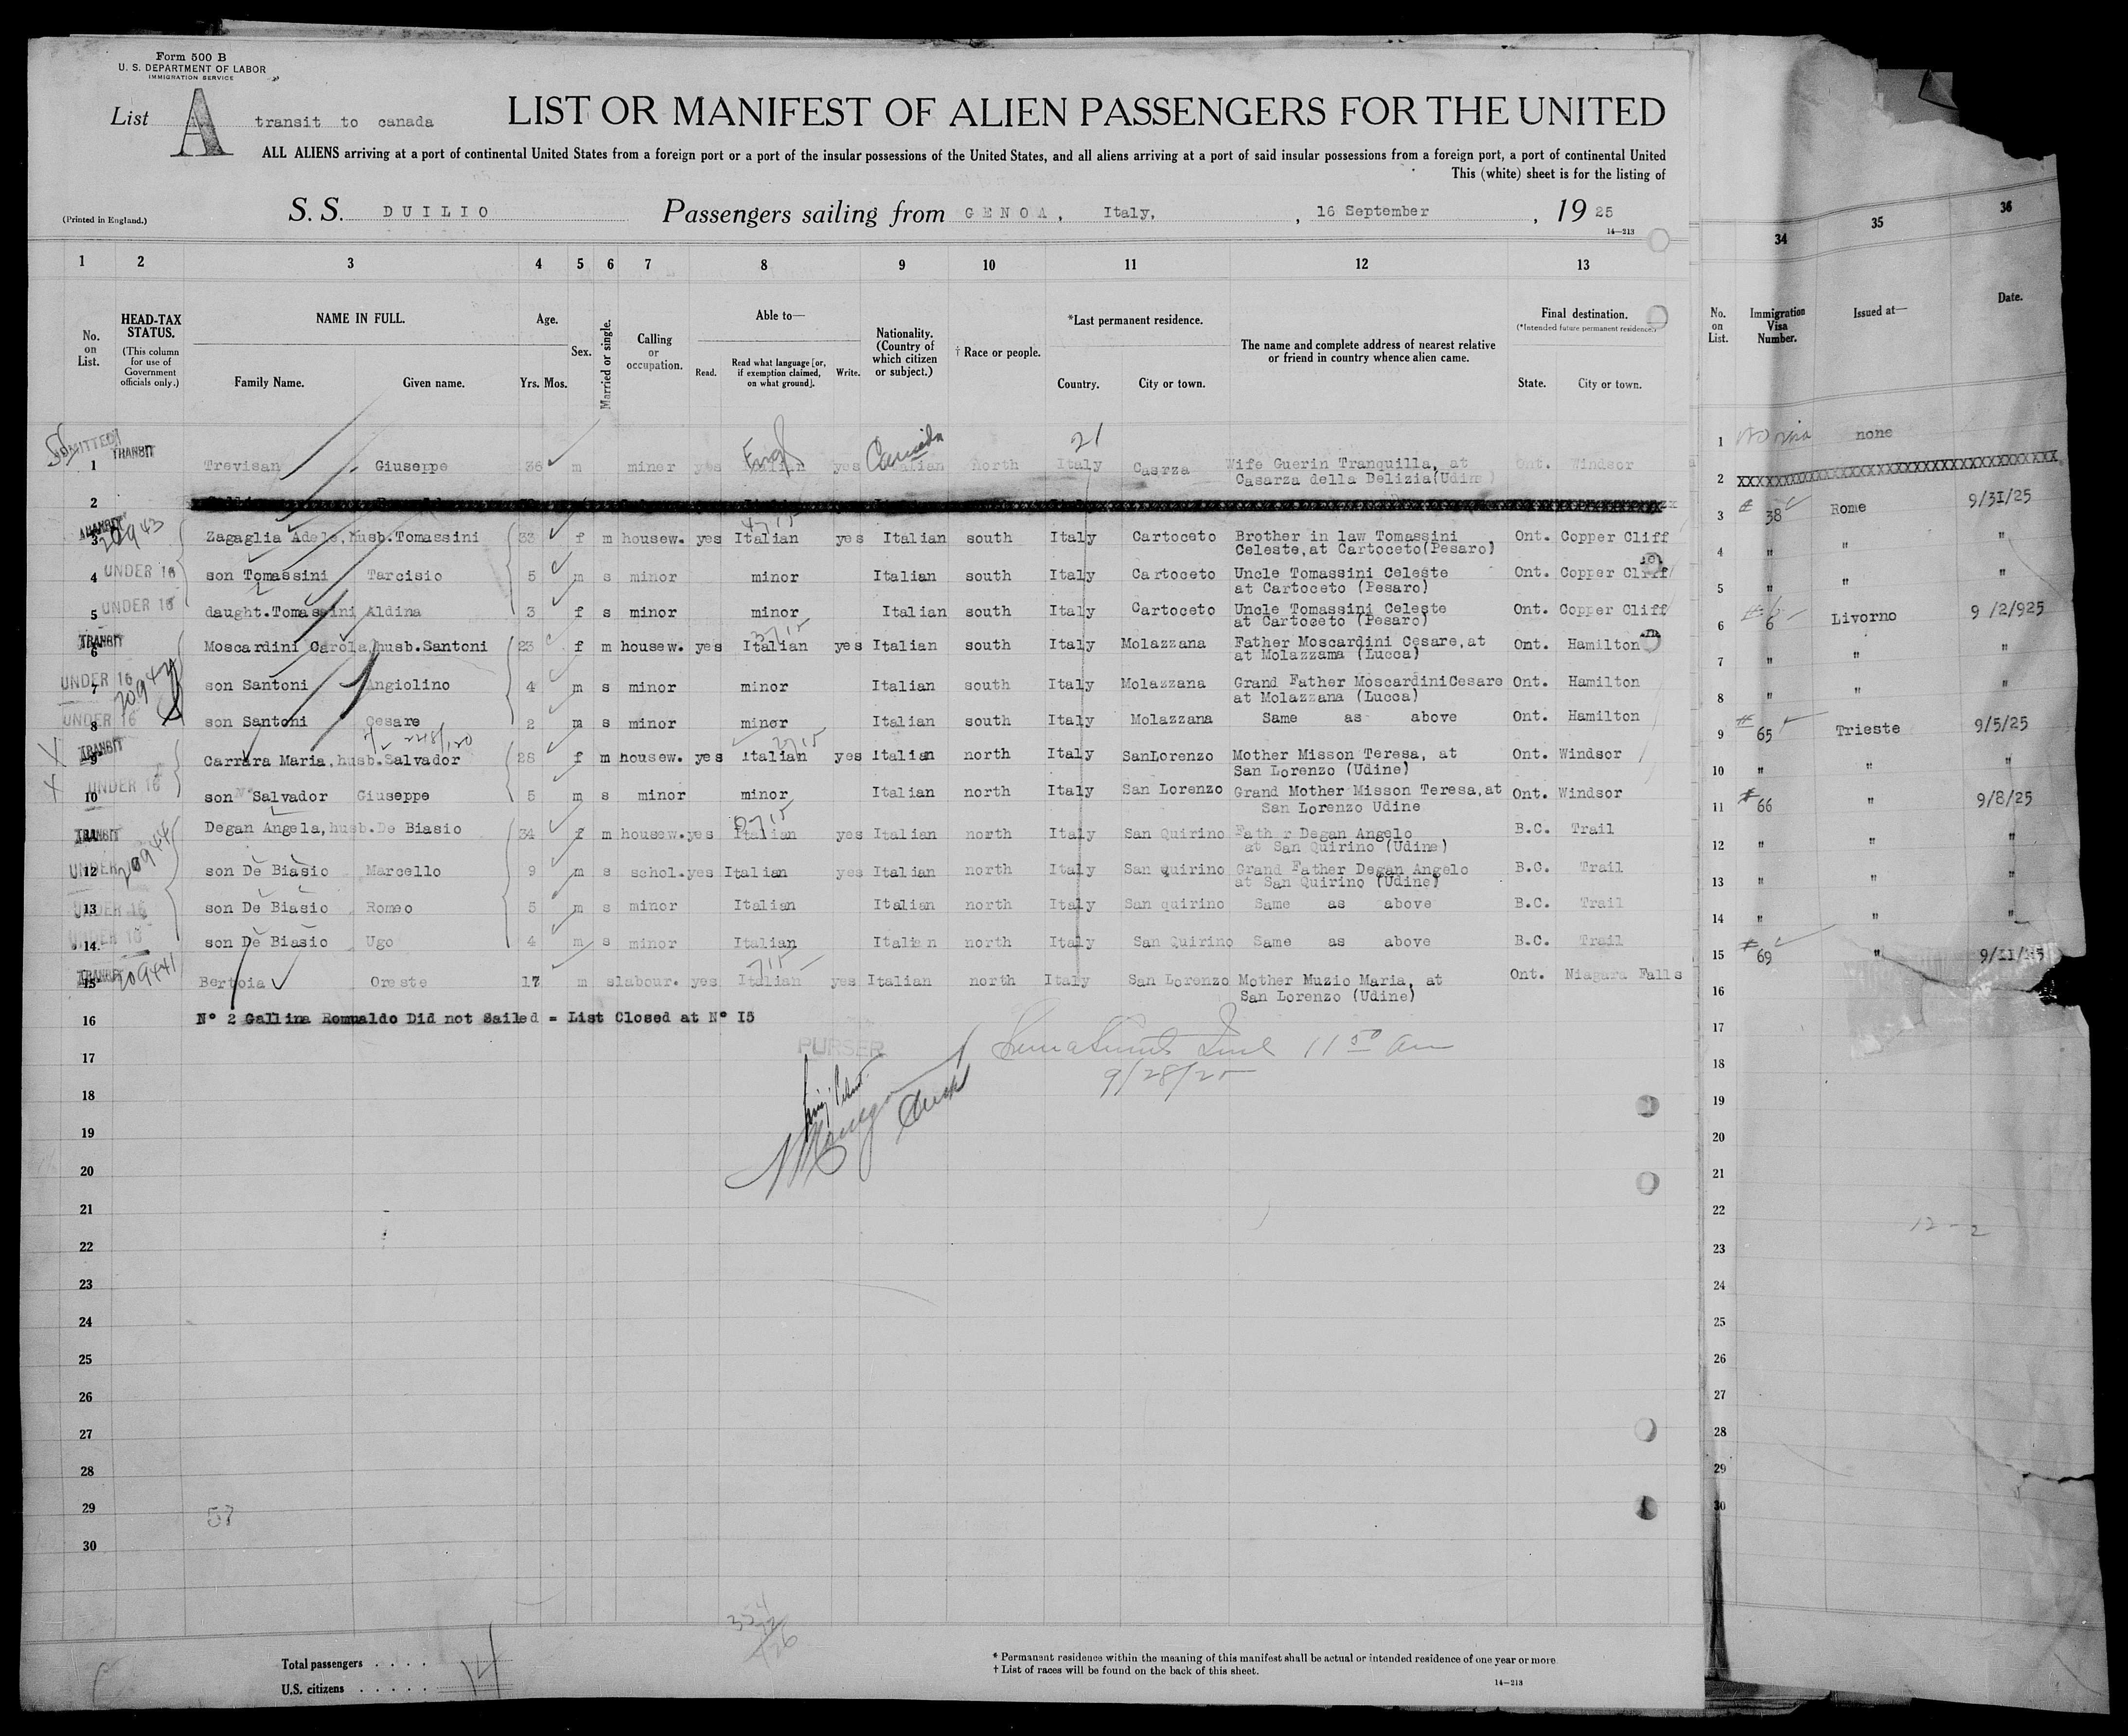 Form 500 B
U. S. DEPARTMENT OF LABOR
IMMIGRATION SERVICE
List A transit to canada
LIST OR MANIFEST OF ALIEN PASSENGERS FOR THE UNITED
ALL ALIENS arriving at a port of continental United States from a foreign port or a port of the insular possessions of the United States, and all aliens arriving at a port of said insular possessions from a foreign port, a port of continental United
This (white) sheet is for the listing of
(Printed in England.)
S. S. DUILIO Passengers sailing from GENOA, Italy, , 16 September , 19 25
14—213
1 2 3 4 5 6 7 8 9 10 11 12 13 34 35 36
No. on List.
HEAD-TAX STATUS.
(This column for use of Government officials only.)
NAME IN FULL.
Family Name. Given name.
Age.
Yrs. Mos.
Sex.
Married or single.
Calling or occupation.
Able to—
Read. Read what language [or, if exemption claimed, on what ground]. Write.
Nationality. (Country of which citizen or subject.)
† Race or people.
*Last permanent residence.
Country. City or town.
The name and complete address of nearest relative or friend in country whence alien came.
Final destination.
(*Intended future permanent residence.)
State. City or town.
No. on List.
Immigration Visa Number.
Issued at—
Date.
ADMITTED
Eng Canada 21
1 TRANSIT Trevisan Giuseppe 36 m miner yes Italian yes Italian North Italy Casrza Wife Guerin Tranquilla, at Ont. Windsor 1 No visa none
Casarza della Delizia(Udine)
2 2 XXXXXXXXXXXXXXXXXXXXXXXXXXXXXXXX
3 TRANSIT 20943 Zagaglia Adele, husb.Tomassini 33 f m housew. yes Italian yes Italian south Italy Cartoceto Brother in law Tomassini Ont. Copper Cliff 3 # 38 Rome 9/31/25
Celeste,at Cartoceto(Pesaro)
4 UNDER 16 son Tomassini Tarcisio 5 m s minor minor Italian south Italy Cartoceto Uncle Tomassini Celeste Ont. Copper Cliff 4 " " "
at Cartoceto (Pesaro)
5 UNDER 16 daught.Tomassini Aldina 3 f s minor minor Italian south Italy Cartoceto Uncle Tomassini Celeste Ont. Copper Cliff 5 " " "
at Cartoceto (Pesaro)
6 TRANSIT Moscardini Carola, husb.Santoni 23 f m housew. yes Italian yes Italian south Italy Molazzana Father Moscardini Cesare,at Ont. Hamilton 6 6 Livorno 9 /2/925
at Molazzama (Lucca)
7 UNDER 16 20942 son Santoni Angiolino 4 m s minor minor Italian south Italy Molazzana Grand Father MoscardiniCesare Ont. Hamilton 7 " " "
at Molazzana (Lucca)
8 UNDER 16 son Santoni Cesare 2 m s minor minor Italian south Italy Molazzana Same as above Ont. Hamilton 8 " " "
9 TRANSIT Carrara Maria, husb.Salvador 28 f m housew. yes Italian yes Italian north Italy SanLorenzo Mother Misson Teresa, at Ont. Windsor 9 # 65 Trieste 9/5/25
San Lorenzo (Udine)
10 UNDER 16 son Salvador Giuseppe 5 m s minor minor Italian north Italy San Lorenzo Grand Mother Misson Teresa,at Ont. Windsor 10 " " "
San Lorenzo Udine
11 TRANSIT Degan Angela, husb.De Biasio 34 f m housew. yes Italian yes Italian north Italy San Quirino Father Degan Angelo B.C. Trail 11 # 66 " 9/8/25
at San Quirino (Udine)
12 UNDER 20944 son De Biasio Marcello 9 m s schol. yes Italian yes Italian north Italy San quirino Grand Father Degan Angelo B.C. Trail 12 " " "
at San Quirino (Udine)
13 UNDER 16 son De Biasio Romeo 5 m s minor Italian Italian north Italy San quirino Same as above B.C. Trail 13 " " "
14. UNDER 16 son De Biasio Ugo 4 m s minor Italian Italian north Italy San Quirino Same as above B.C. Trail 14 " " "
15 TRANSIT 209441 Bertoia Oreste 17 m s labour. yes Italian yes Italian north Italy San Lorenzo Mother Muzio Maria, at Ont. Niagara Falls 15 # 69 " 9/11/25
San Lorenzo (Udine)
16 N° 2 Gallina Romualdo Did not Sailed = List Closed at N° I5 16
PURSER
11 50 am
9/28/25
17 17
18 18
19 19
20 20
21 21
22 22
12 - 2
23 23
24 24
25 25
26 26
27 27
28 28
29 57 29
30 30
Total passengers . . . . 14
U.S. citizens . . . . .
* Permanent residence within the meaning of this manifest shall be actual or intended residence of one year or more.
† List of races will be found on the back of this sheet.
14—213